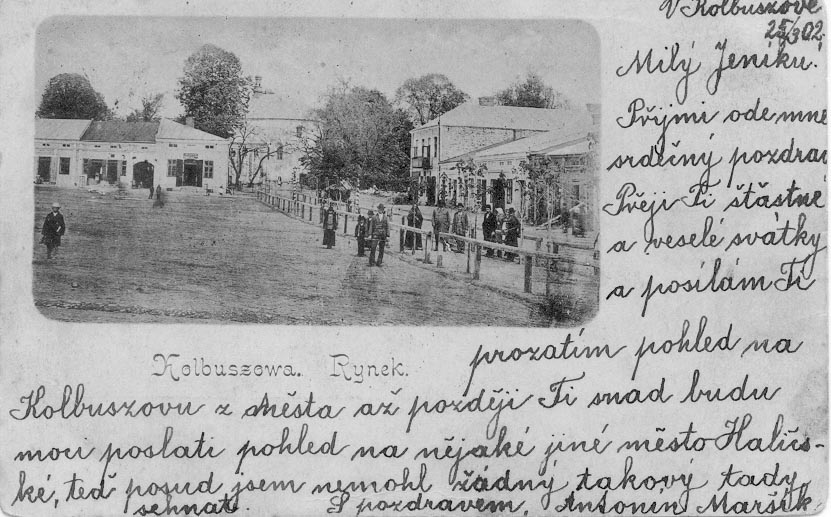 V Kolbuszove
25/3 02.
Milý Jeníku!
Přijmi ode mne
srdečný pozdrav
Přeji Ti štastné
a veselé svátky
a posílám Ti
prozatím pohled na
Kolbuszowa. Rynek.
Kolbuszovu z města až později Ti snad budu
moci poslati pohled na nějaké jiné město Haličs-
ké, teď posud jsem nemohl žádný takový tady
sehnat. S pozdravem, Antonín Maršík.